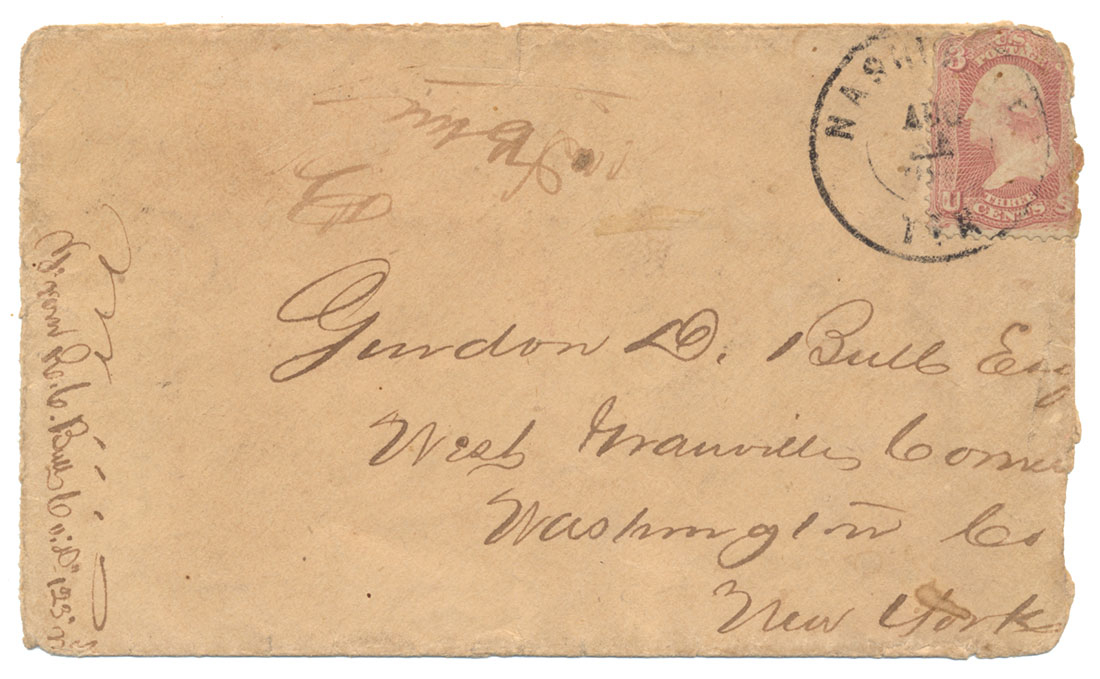 NASHV
AUG
TEN
3 U.S. 3
POSTAGE
THREE
U CENTS S
Gurdon D. Bull Esq
West Granville Corner
Washington Co
New York
From R. C. Bull Co. "D" 123"